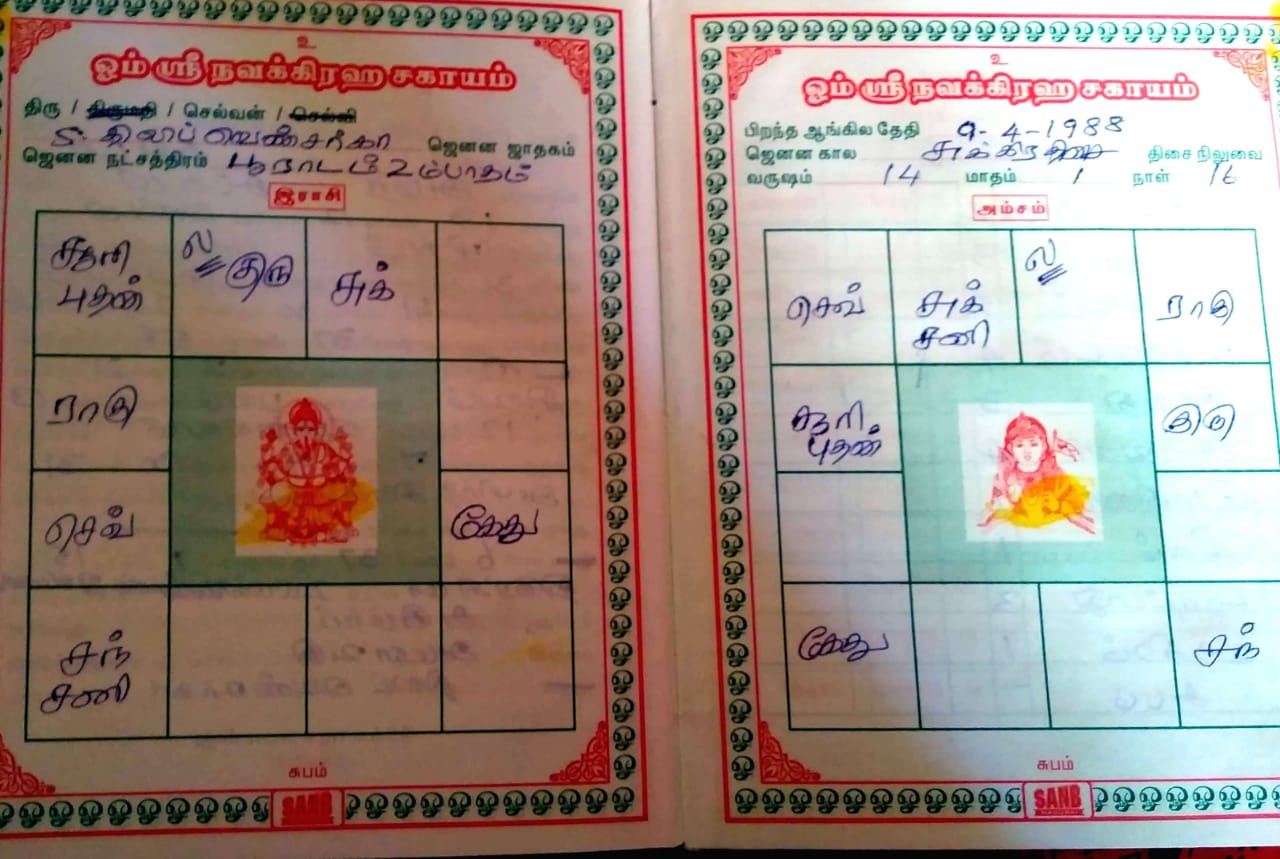 உ
ஓம் ஸ்ரீ நவக்கிரஹ சகாயம்
திரு / திருமதி / செல்வன் / செல்வி
S. திலீப் ஜெனன ஜாதகம்
ஜெனன நட்சத்திரம் பூராடம் 2ம்பாதம்
இராசி
சூரி புதன்
ல குரு
சுக்
ராகு
செவ்
கேது
சந் சனி
சுபம்
SANB
உ
ஓம் ஸ்ரீ நவக்கிரஹ சகாயம்
பிறந்த ஆங்கில தேதி 9-4-1988
ஜெனன கால சுக்கிர திசை திசை நிலுவை
வருஷம் 14 மாதம் 1 நாள் 16
அம்சம்
செவ்
சுக் சனி
ல
ராகு
சூரி புதன்
குரு
கேது
சந்
சுபம்
SANB